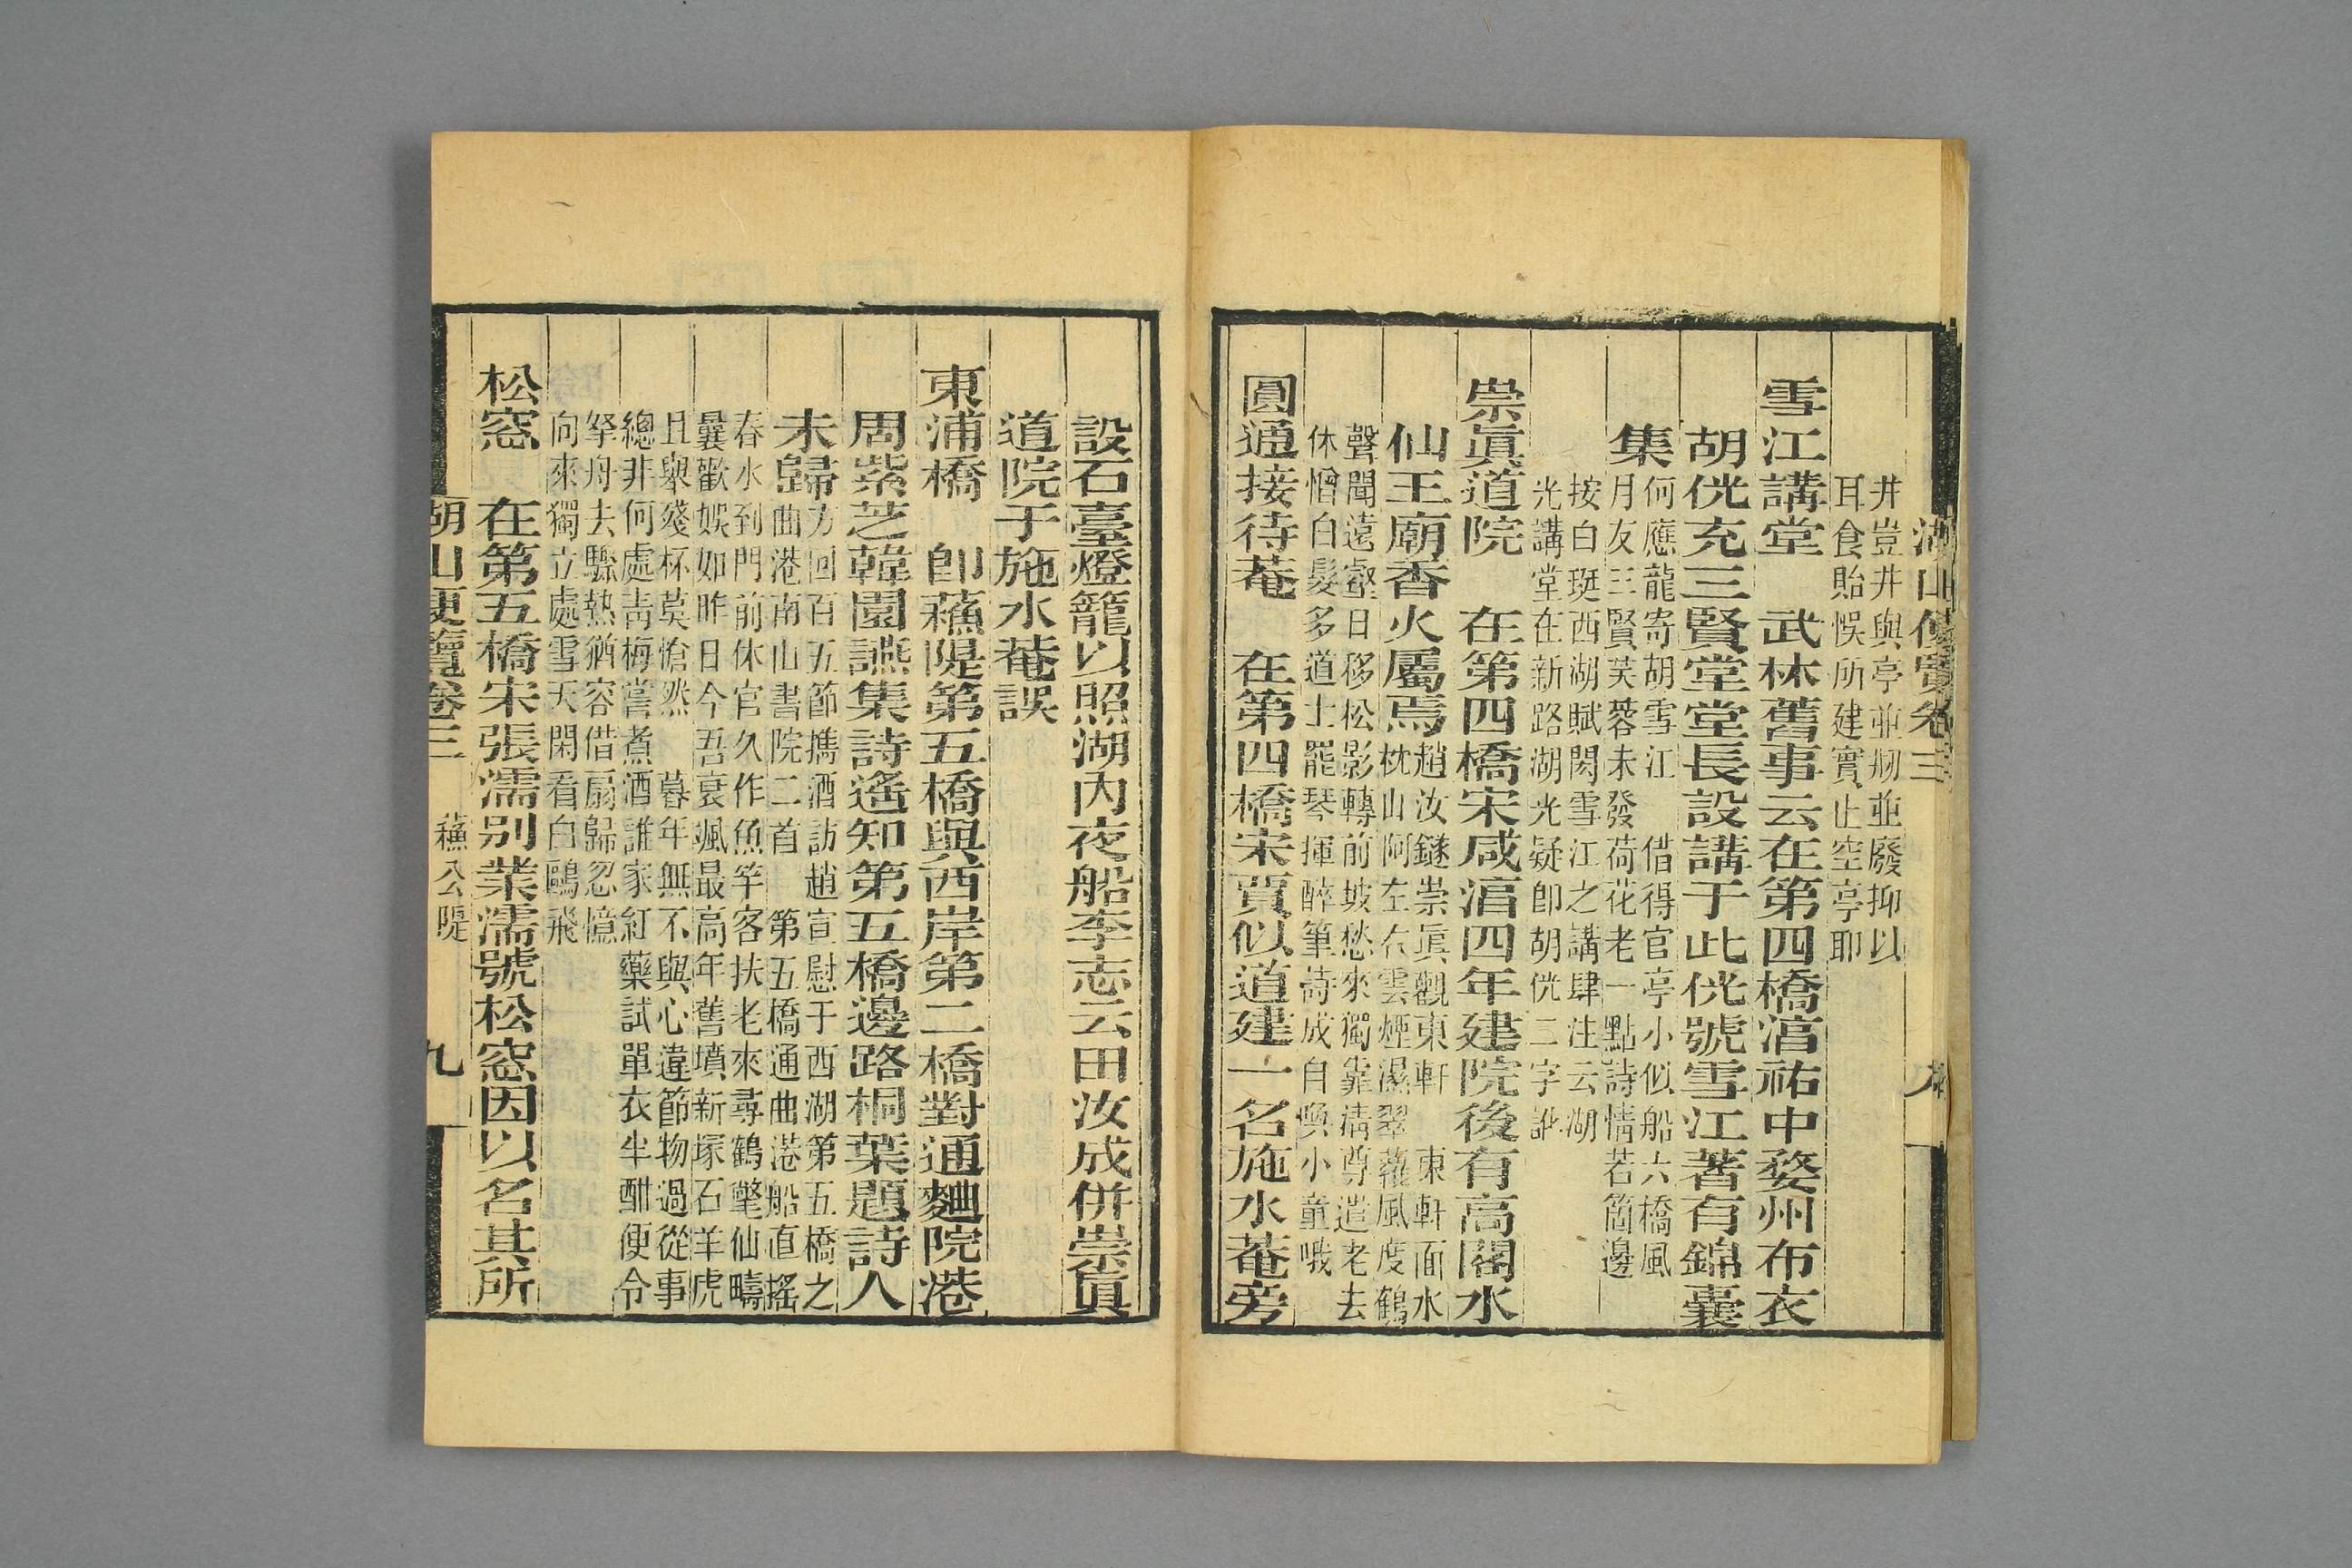 湖山便覽卷三
井豈井與亭並剏並廢抑以
耳食貽悞所建實止空亭耶
雪江講堂　武林舊事云在第四橋湻祐中婺州布衣
胡侊充三賢堂堂長設講于此侊號雪江著有錦囊
集
何應龍寄胡雪江　借得官亭小似船六橋風
月友三賢芙蓉未發荷花老一點詩情若箇邊
按白珽西湖賦閎雪江之講肆注云湖
光講堂在新路湖光疑卽胡侊二字訛
崇眞道院　在第四橋宋咸湻四年建院後有高閣水
仙王廟香火屬焉
趙汝鐩崇眞觀東軒　東軒面水
枕山阿左右雲煙濕翠蘿風度鶴
聲聞遠壑日移松影轉前坡愁來獨靠淸尊遣老去
休憎白髮多道士罷琴揮醉筆詩成自喚小童哦
圓通接待菴　在第四橋宋賈似道建一名施水菴旁
設石臺燈籠以照湖內夜船李志云田汝成併崇眞
道院于施水菴誤
東浦橋　卽蘇隄第五橋與西岸第二橋對通麯院港
周紫芝韓園讌集詩遙知第五橋邊路桐葉題詩人
未歸
方回百五節攜酒訪趙宣慰于西湖第五橋之
曲港南山書院二首　第五橋通曲港船直搖
春水到門前休官久作魚竿客扶老來尋鶴氅仙疇
曩歡娛如昨日今吾衰颯最高年舊墳新塚石羊虎
且與殘杯莫愴然　暮年無不與心違節物過從事
總非何處靑梅嘗煮酒誰家紅藥試單衣半酣便令
拏舟去驟熱猶容借扇歸忽憶
向來獨立處雪天閑看白鷗飛
松窓　在第五橋宋張濡別業濡號松窓因以名其所
湖山便覽卷三　蘇公隄　九